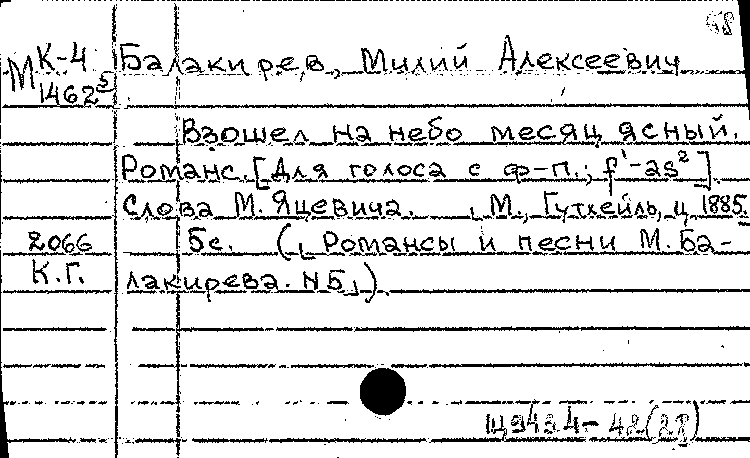 68
М К-4 1462⁵ Балакирев, Милий Алексеевич
Взошел на небо месяц ясный.
Романс. [Для голоса с ф-п.; f¹-as²].
Слова М. Яцевича. М., Гутхейль, ц. 1885.
2066 5с. (Романсы и песни М. Ба-
К.Г. лакирева. N5).
Щ943.4-48(28)